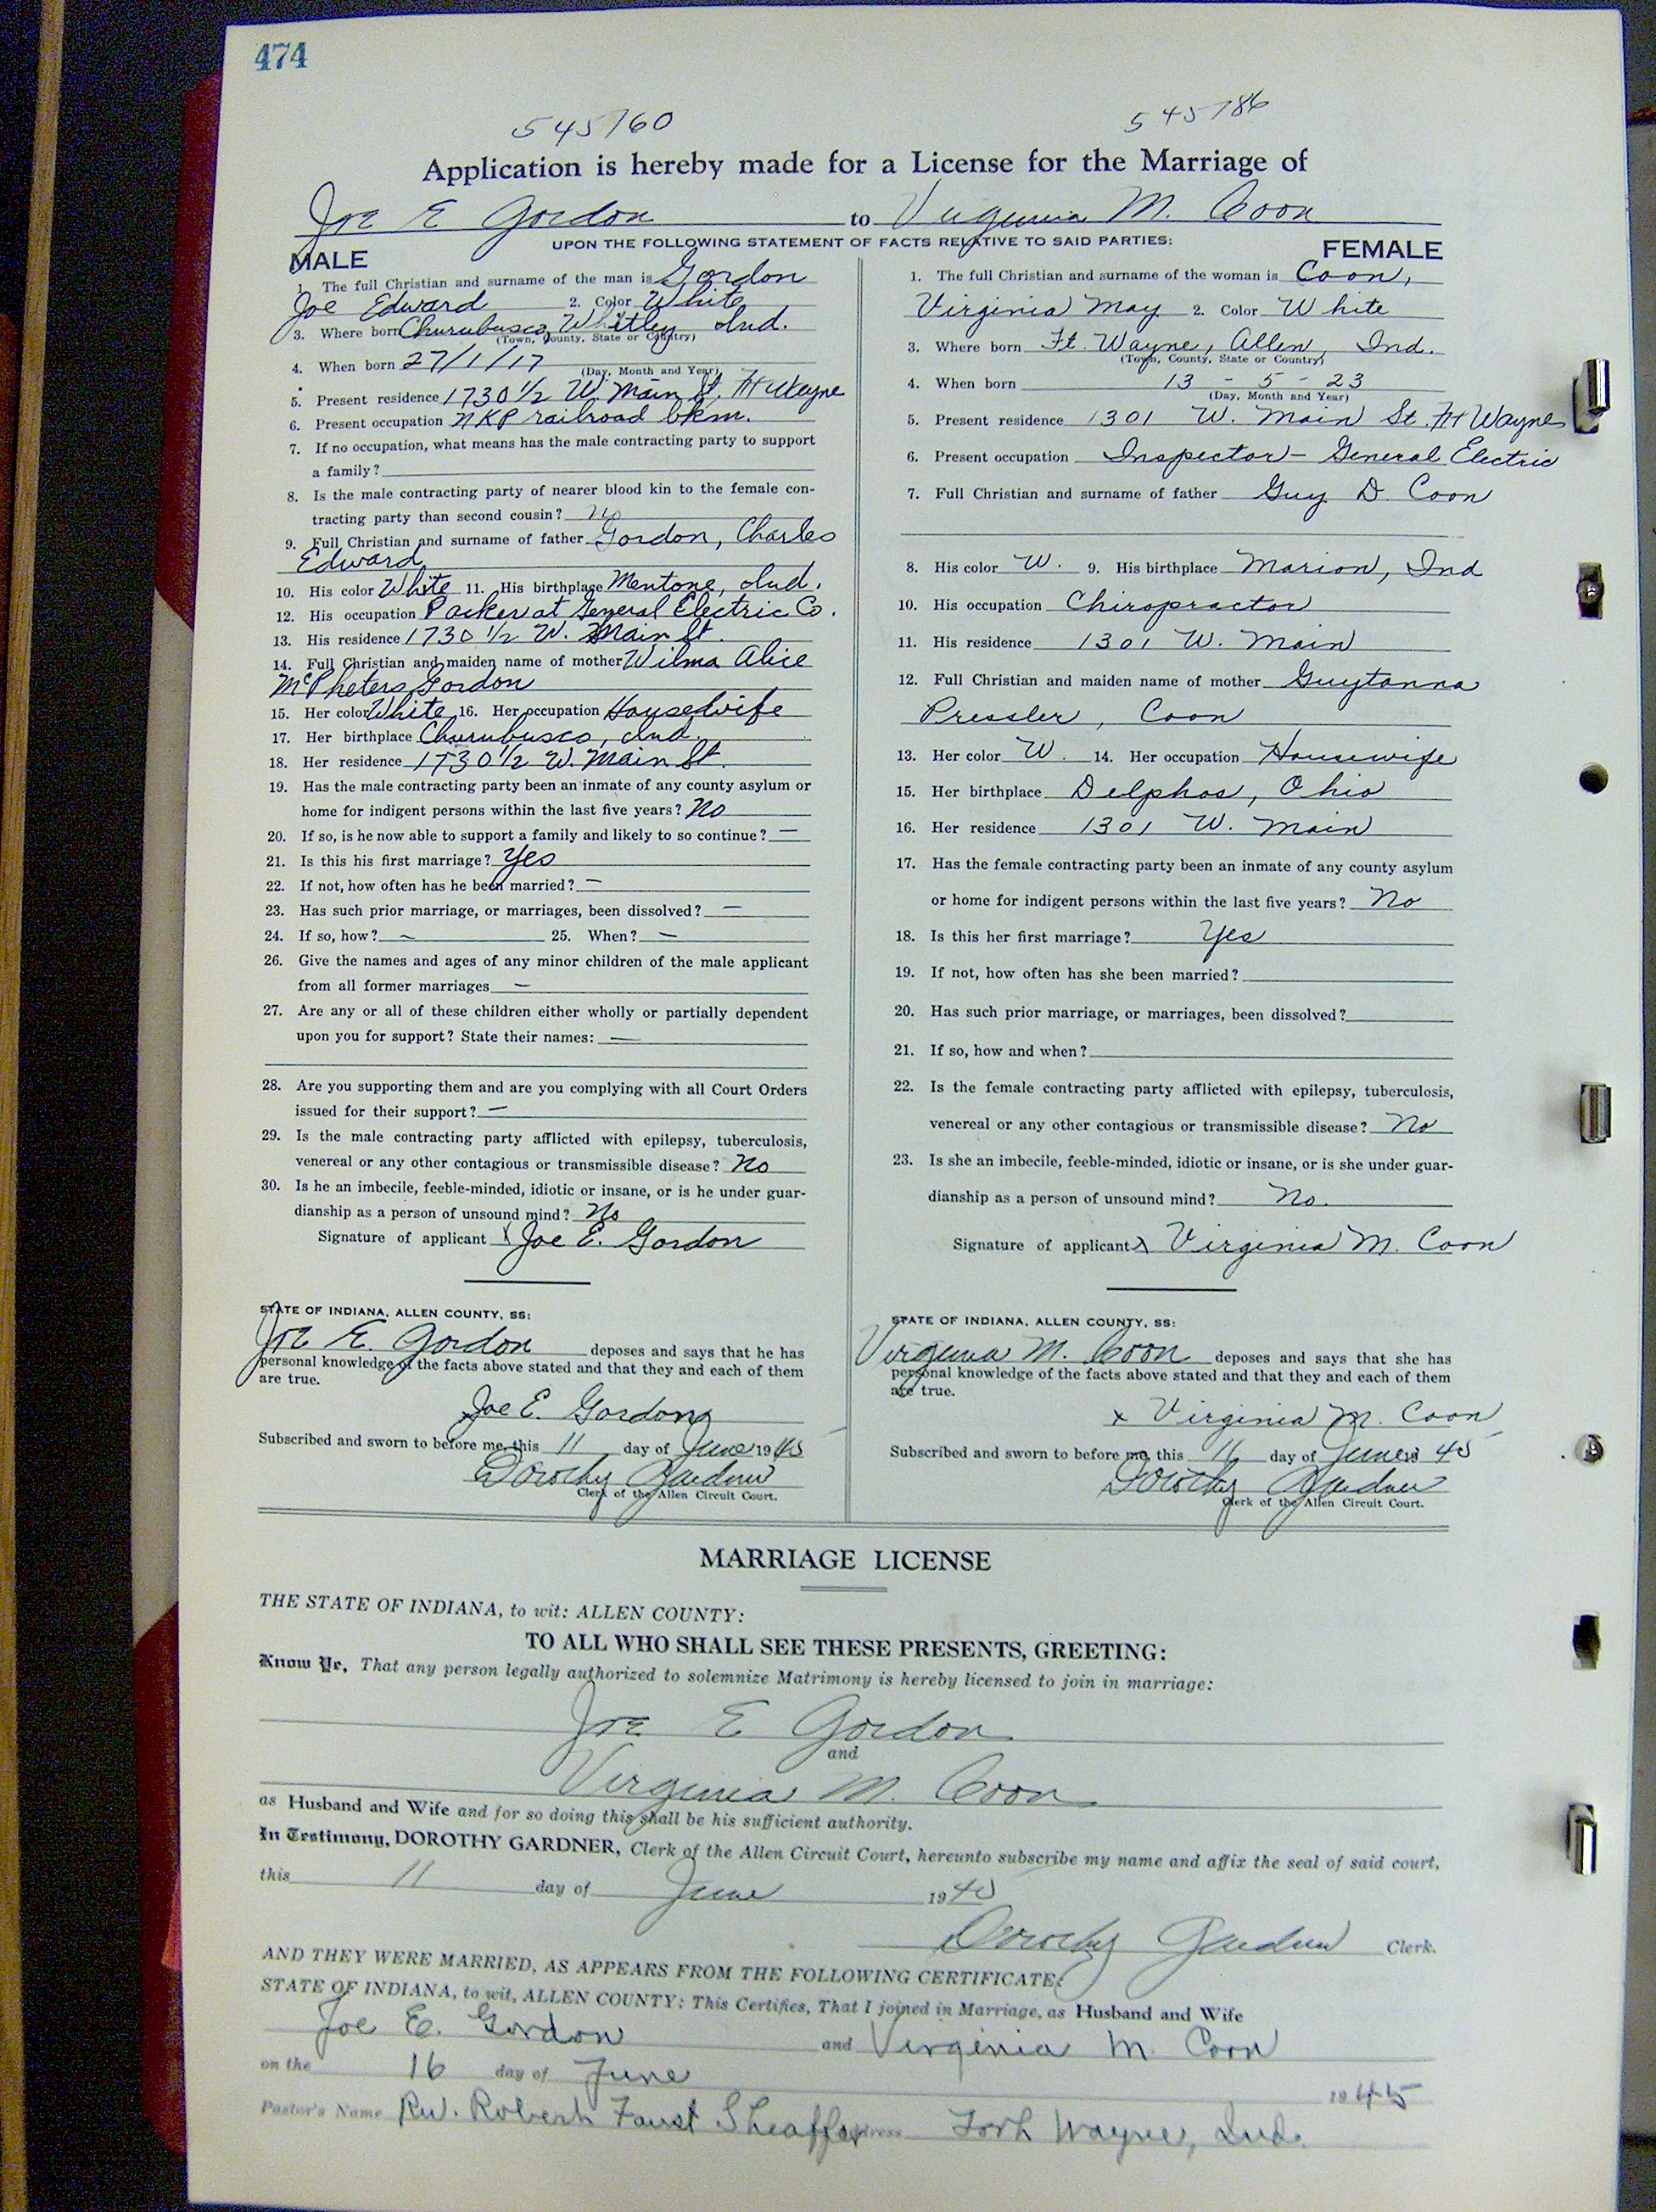 474
545760 545786
Application is hereby made for a License for the Marriage of
Joe E Gordon to Virginia M. Coon
UPON THE FOLLOWING STATEMENT OF FACTS RELATIVE TO SAID PARTIES:
MALE
1. The full Christian and surname of the man is Gordon
Joe Edward 2. Color White
3. Where born Churubusco, Whitley Ind.
(Town, County, State or Country)
4. When born 27/1/17
(Day, Month and Year)
5. Present residence 1730 1/2 W. Main St. Ft Wayne
6. Present occupation NKP railroad bkm.
7. If no occupation, what means has the male contracting party to support
a family?
8. Is the male contracting party of nearer blood kin to the female con-
tracting party than second cousin? no
9. Full Christian and surname of father Gordon, Charles
Edward
10. His color White 11. His birthplace Mentone, Ind.
12. His occupation Packer at General Electric Co.
13. His residence 1730 1/2 W. Main St.
14. Full Christian and maiden name of mother Wilma Alice
McPheters Gordon
15. Her color White 16. Her occupation Housewife
17. Her birthplace Churubusco, Ind.
18. Her residence 1730 1/2 W. Main St.
19. Has the male contracting party been an inmate of any county asylum or
home for indigent persons within the last five years? No
20. If so, is he now able to support a family and likely to so continue? —
21. Is this his first marriage? Yes
22. If not, how often has he been married? —
23. Has such prior marriage, or marriages, been dissolved? —
24. If so, how? — 25. When? —
26. Give the names and ages of any minor children of the male applicant
from all former marriages —
27. Are any or all of these children either wholly or partially dependent
upon you for support? State their names: —
28. Are you supporting them and are you complying with all Court Orders
issued for their support? —
29. Is the male contracting party afflicted with epilepsy, tuberculosis,
venereal or any other contagious or transmissible disease? No
30. Is he an imbecile, feeble-minded, idiotic or insane, or is he under guar-
dianship as a person of unsound mind? No
Signature of applicant x Joe E. Gordon
STATE OF INDIANA, ALLEN COUNTY, SS:
Joe E. Gordon deposes and says that he has
personal knowledge of the facts above stated and that they and each of them
are true.
Joe E. Gordon
Subscribed and sworn to before me, this 11 day of June 1945
Dorothy Gardner
Clerk of the Allen Circuit Court.
FEMALE
1. The full Christian and surname of the woman is Coon,
Virginia May 2. Color White
3. Where born Ft. Wayne, Allen, Ind.
(Town, County, State or Country)
4. When born 13 - 5 - 23
(Day, Month and Year)
5. Present residence 1301 W. Main St. Ft Wayne
6. Present occupation Inspector - General Electric
7. Full Christian and surname of father Guy D. Coon
8. His color W. 9. His birthplace Marion, Ind
10. His occupation Chiropractor
11. His residence 1301 W. Main
12. Full Christian and maiden name of mother Guytanna
Pressler, Coon
13. Her color W. 14. Her occupation Housewife
15. Her birthplace Delphos, Ohio
16. Her residence 1301 W. Main
17. Has the female contracting party been an inmate of any county asylum
or home for indigent persons within the last five years? No
18. Is this her first marriage? Yes
19. If not, how often has she been married?
20. Has such prior marriage, or marriages, been dissolved?
21. If so, how and when?
22. Is the female contracting party afflicted with epilepsy, tuberculosis,
venereal or any other contagious or transmissible disease? No
23. Is she an imbecile, feeble-minded, idiotic or insane, or is she under guar-
dianship as a person of unsound mind? No.
Signature of applicant x Virginia M. Coon
STATE OF INDIANA, ALLEN COUNTY, SS:
Virginia M. Coon deposes and says that she has
personal knowledge of the facts above stated and that they and each of them
are true.
x Virginia M. Coon
Subscribed and sworn to before me, this 11 day of June 19 45
Dorothy Gardner
Clerk of the Allen Circuit Court.
MARRIAGE LICENSE
THE STATE OF INDIANA, to wit: ALLEN COUNTY:
TO ALL WHO SHALL SEE THESE PRESENTS, GREETING:
Know Ye, That any person legally authorized to solemnize Matrimony is hereby licensed to join in marriage:
Joe E Gordon
and
Virginia M. Coon
as Husband and Wife and for so doing this shall be his sufficient authority.
In Testimony, DOROTHY GARDNER, Clerk of the Allen Circuit Court, hereunto subscribe my name and affix the seal of said court,
this 11 day of June 1945
Dorothy Gardner Clerk.
AND THEY WERE MARRIED, AS APPEARS FROM THE FOLLOWING CERTIFICATE:
STATE OF INDIANA, to wit, ALLEN COUNTY: This Certifies, That I joined in Marriage, as Husband and Wife
Joe E. Gordon and Virginia M. Coon
on the 16 day of June 1945
Pastor's Name Rev. Robert Faust Sheaffer Address Fort Wayne, Ind.